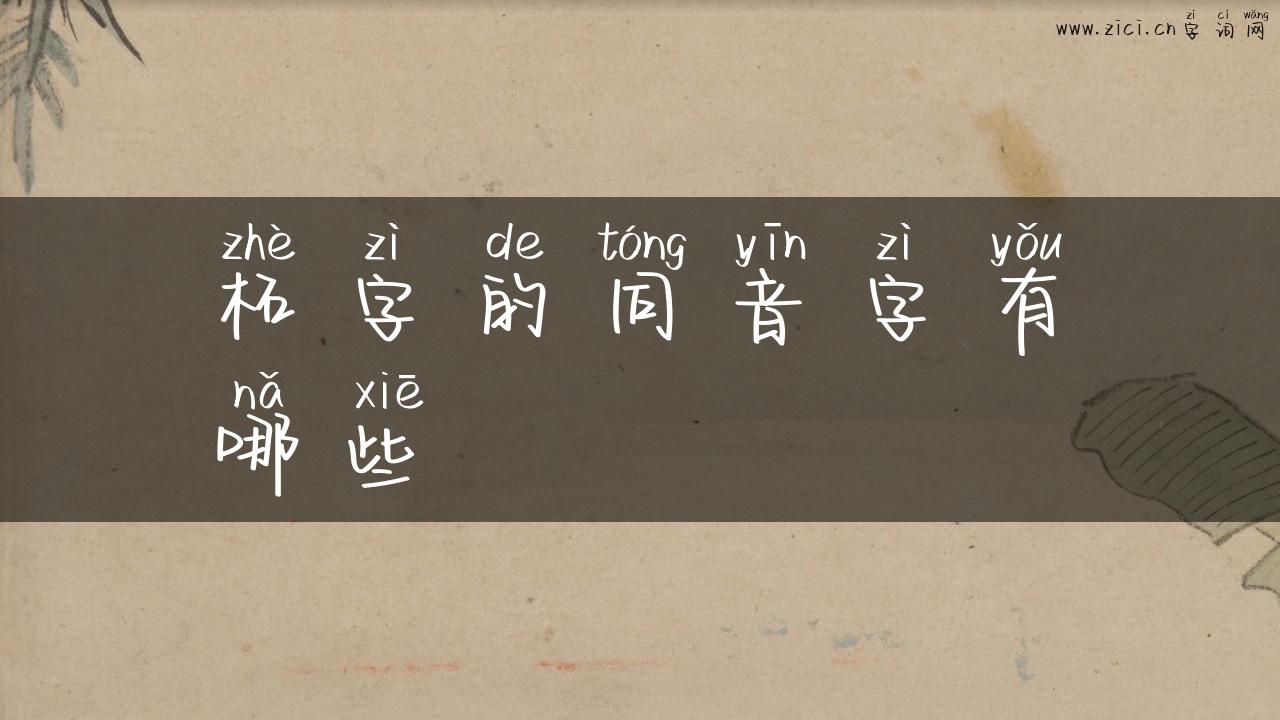 zì cí wǎng
www.zici.cn 字 词 网
zhè zì de tóng yīn zì yǒu
柘 字 的 同 音 字 有
nǎ xiē
哪 些